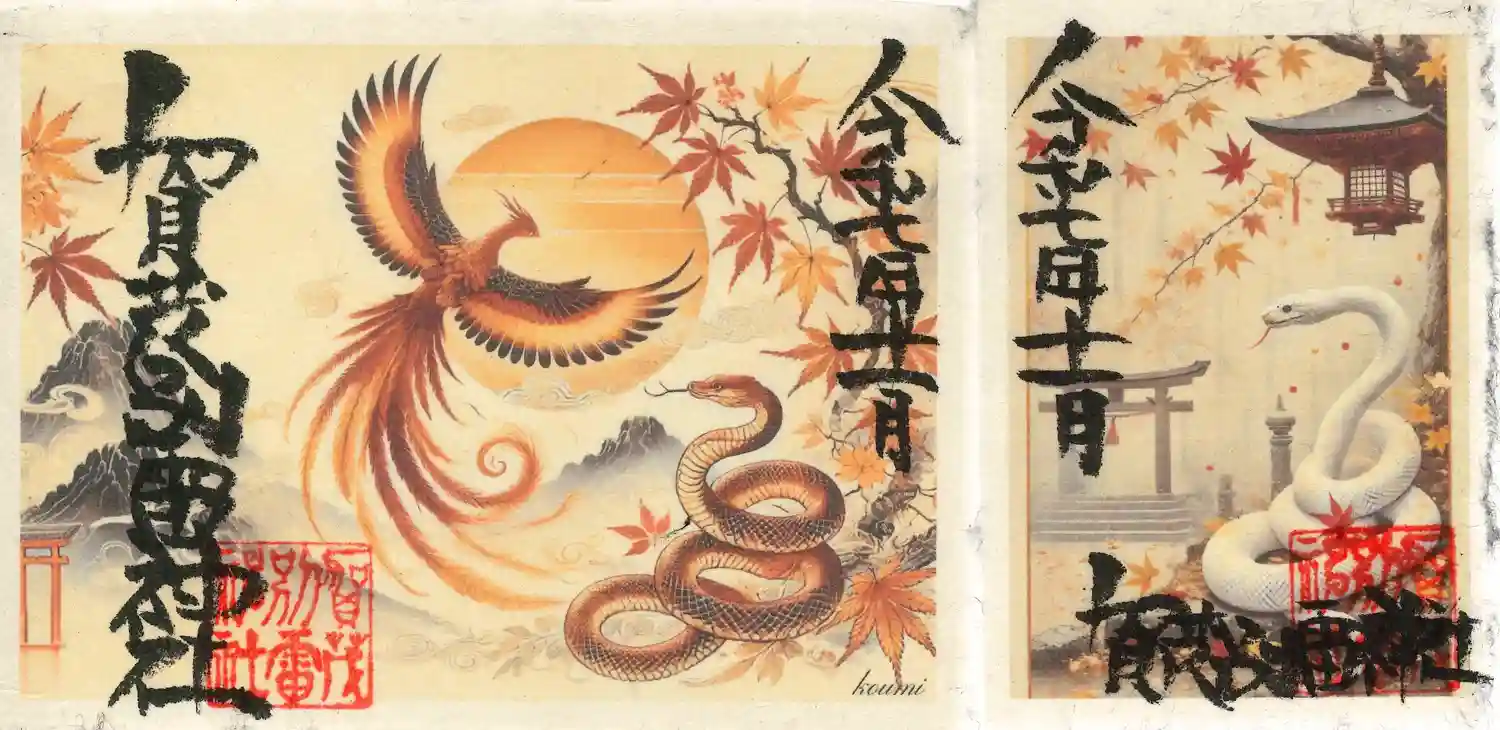 令和七年十一月
賀茂別雷神社
令和七年十一月
賀茂別雷神社
賀茂
別雷
神社
koumi